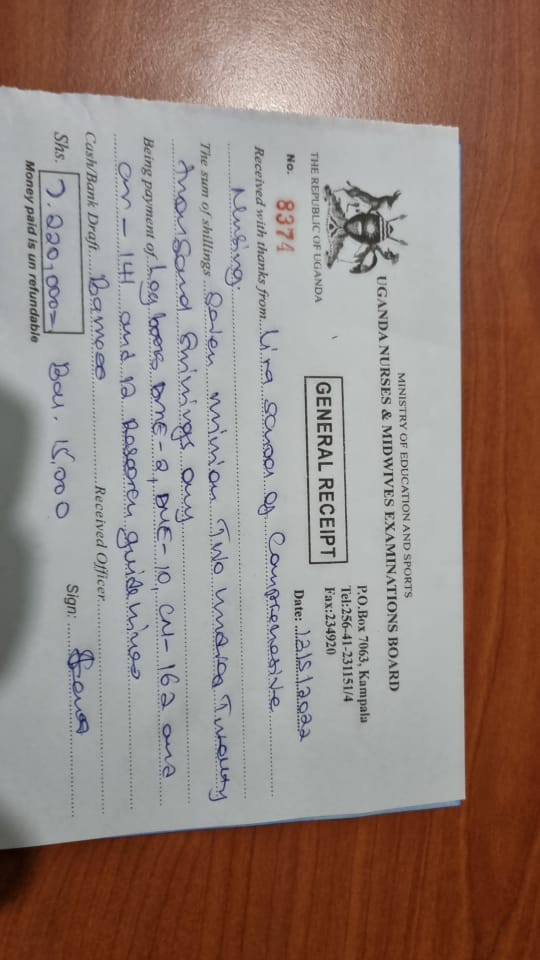 MINISTRY OF EDUCATION AND SPORTS
UGANDA NURSES & MIDWIVES EXAMINATIONS BOARD
P.O.Box 7063, Kampala
Tel:256-41-231151/4
Fax:234920
THE REPUBLIC OF UGANDA
GENERAL RECEIPT
No. 8374
Date: 12/5/2022
Received with thanks from Lira School of Comprehensive
Nursing.
The sum of shillings Seven million Two hundred Twenty
thousand shillings only
Being payment of Log books DME-2, DNE-10, CN-162 and
CM-141 and 12 Research guidelines
Cash/Bank Draft Balance Received Officer
Shs. 7,220,000= Bal. 15,000 Sign:
Money paid is un refundable